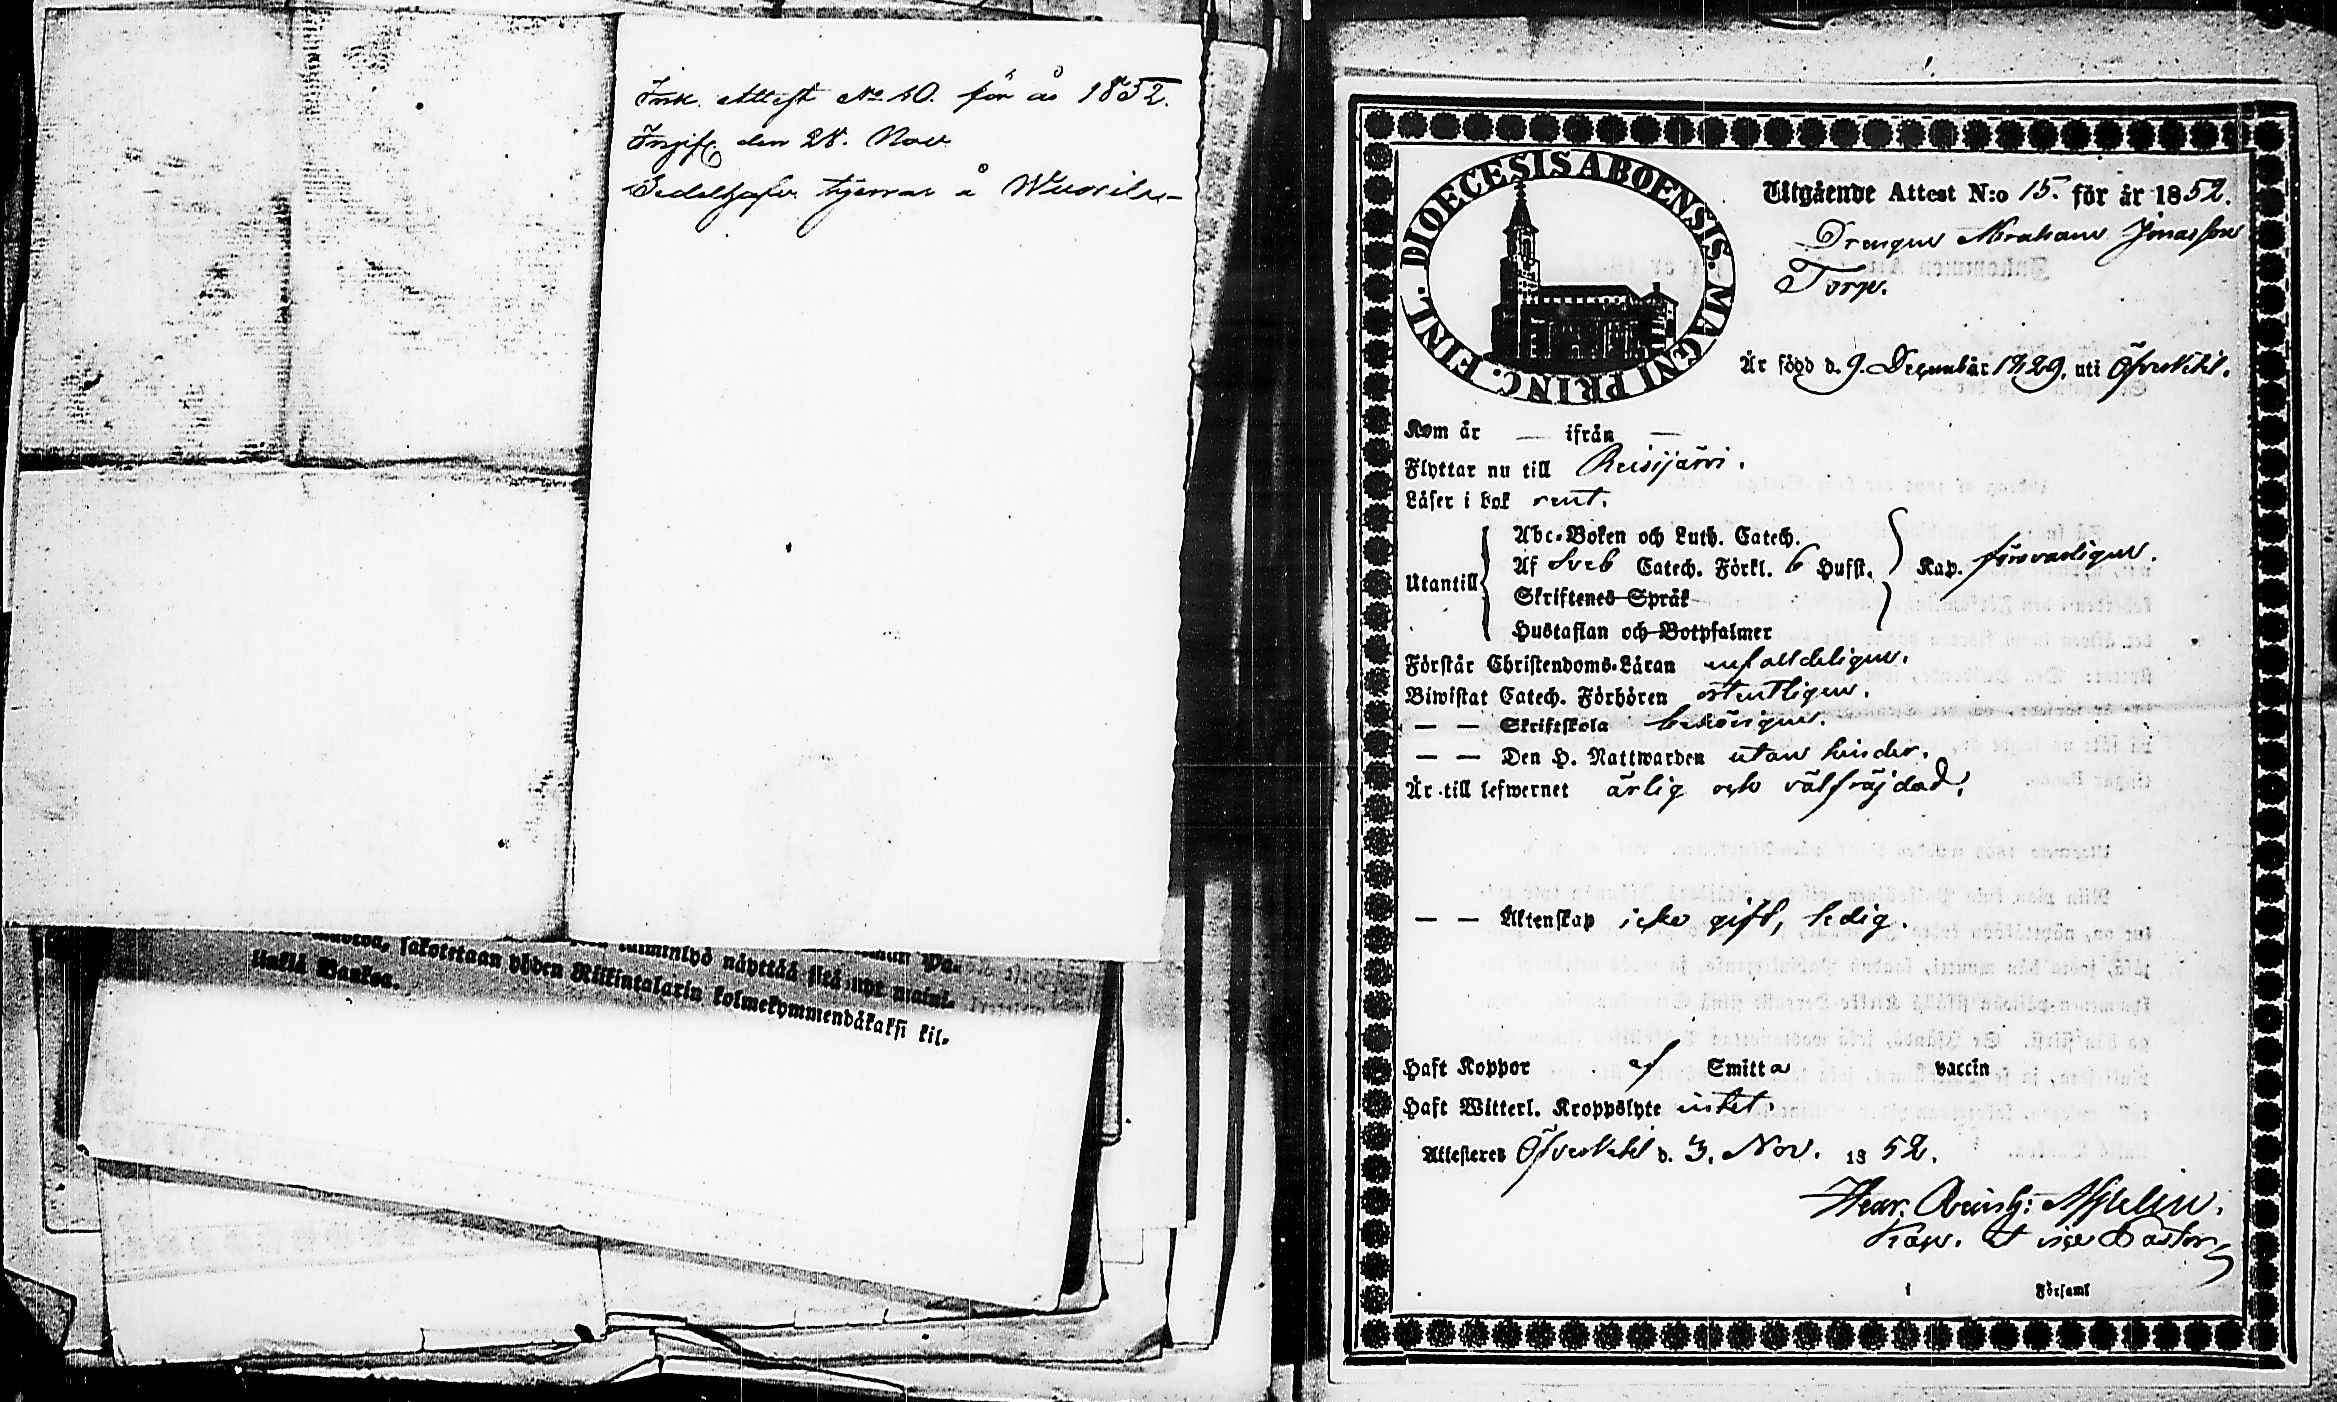 Ink. Attest No 10. för år 1852.
Ingift. den 28. Nov.
Sedelhafn. tjenar å
sakotetaan yhden Riikintalarin kolmekymmendäkaksi kil-
linkiä Bankoa.
näyttää sitä
DIOECESIS ABOENSIS. MAGNI PRINC. FINL.
Utgående Attest N:o 15. för år 1852.
Drengen Abraham Jonasson
Torp.
Är född d. 9. December 1829. uti Öfvertehl.
Kom år — ifrån —
Flyttar nu till Reisijärvi.
Läser i bok rent.
Utantill
Abc-Boken och Luth. Catech.
Af Sveb Catech. Förkl. 6 Hufst. Kap. försvarligen.
Skriftenes Språk
Hustaflan och Botpsalmer
Förstår Christendoms-Läran enfaldeligen.
Biwistat Catech. Förhören ordentligen.
— — Skriftskola behörigen.
— — Den H. Nattwarden utan hinder.
Är till lefwernet ärlig och välfräjdad.
— — Äktenskap icke gift, ledig.
Haft Koppor af Smitta vaccin
Haft Witterl. Kroppslyte intet.
Attesteres d. 3. Nov. 1852.
Henr. Reinh:
Kap. & vice Pastor
i Församl